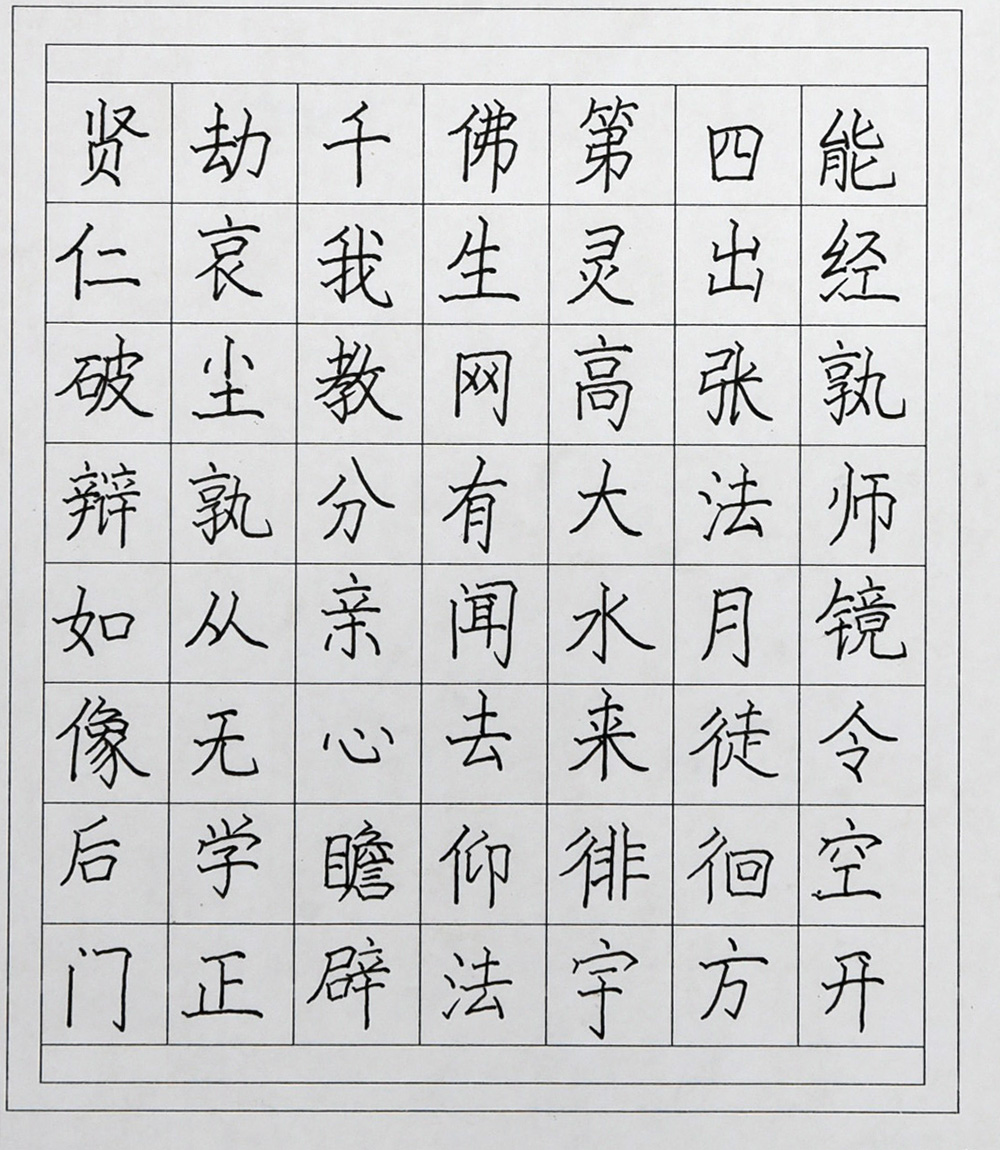 贤劫千佛第四能
仁哀我生灵出经
破尘教网高张孰
辩孰分有大法师
如从亲闻水月镜
像无心去来徒令
后学瞻仰徘徊空
门正辟法宇方开